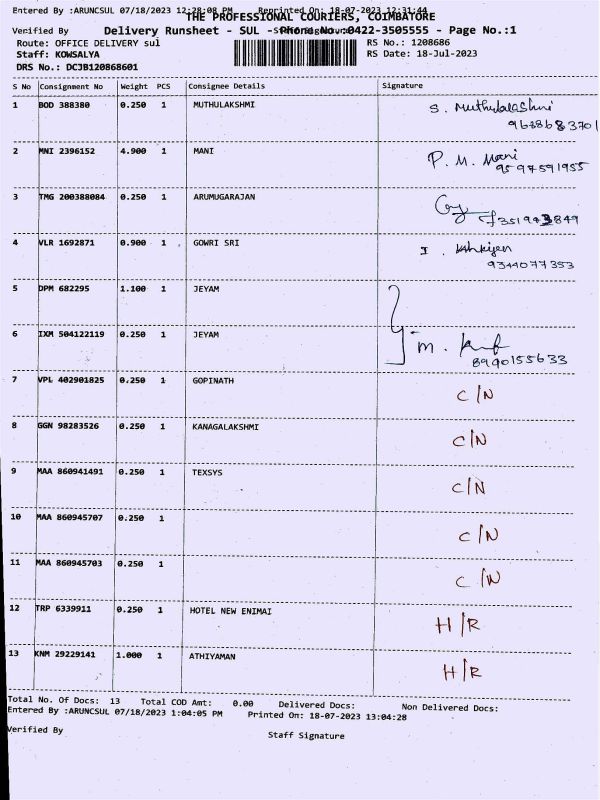 Entered By :ARUNCSUL 07/18/2023 12:28:08 PM Reprinted On: 18-07-2023 12:31:44
THE PROFESSIONAL COURIERS, COIMBATORE
Verified By Delivery Runsheet - SUL - Phone No.:0422-3505555 - Page No.:1
Route: OFFICE DELIVERY sul RS No.: 1208686
Staff: KOWSALYA RS Date: 18-Jul-2023
DRS No.: DCJB120868601
S No Consignment No Weight PCS Consignee Details Signature
1 BOD 388380 0.250 1 MUTHULAKSHMI S. Muthulakshmi
9638683701
2 MNI 2396152 4.900 1 MANI P. M. Mani
9597591955
3 TMG 200388084 0.250 1 ARUMUGARAJAN
4 VLR 1692871 0.900 1 GOWRI SRI I.
9344077353
5 DPM 682295 1.100 1 JEYAM
6 IXM 504122119 0.250 1 JEYAM m.
8940155633
7 VPL 402901825 0.250 1 GOPINATH C/N
8 GGN 98283526 0.250 1 KANAGALAKSHMI C/N
9 MAA 860941491 0.250 1 TEXSYS C/N
10 MAA 860945707 0.250 1 C/N
11 MAA 860945703 0.250 1 C/N
12 TRP 6339911 0.250 1 HOTEL NEW ENIMAI H/R
13 KNM 29229141 1.000 1 ATHIYAMAN H/R
Total No. Of Docs: 13 Total COD Amt: 0.00 Delivered Docs: Non Delivered Docs:
Entered By :ARUNCSUL 07/18/2023 1:04:05 PM Printed On: 18-07-2023 13:04:28
Verified By Staff Signature